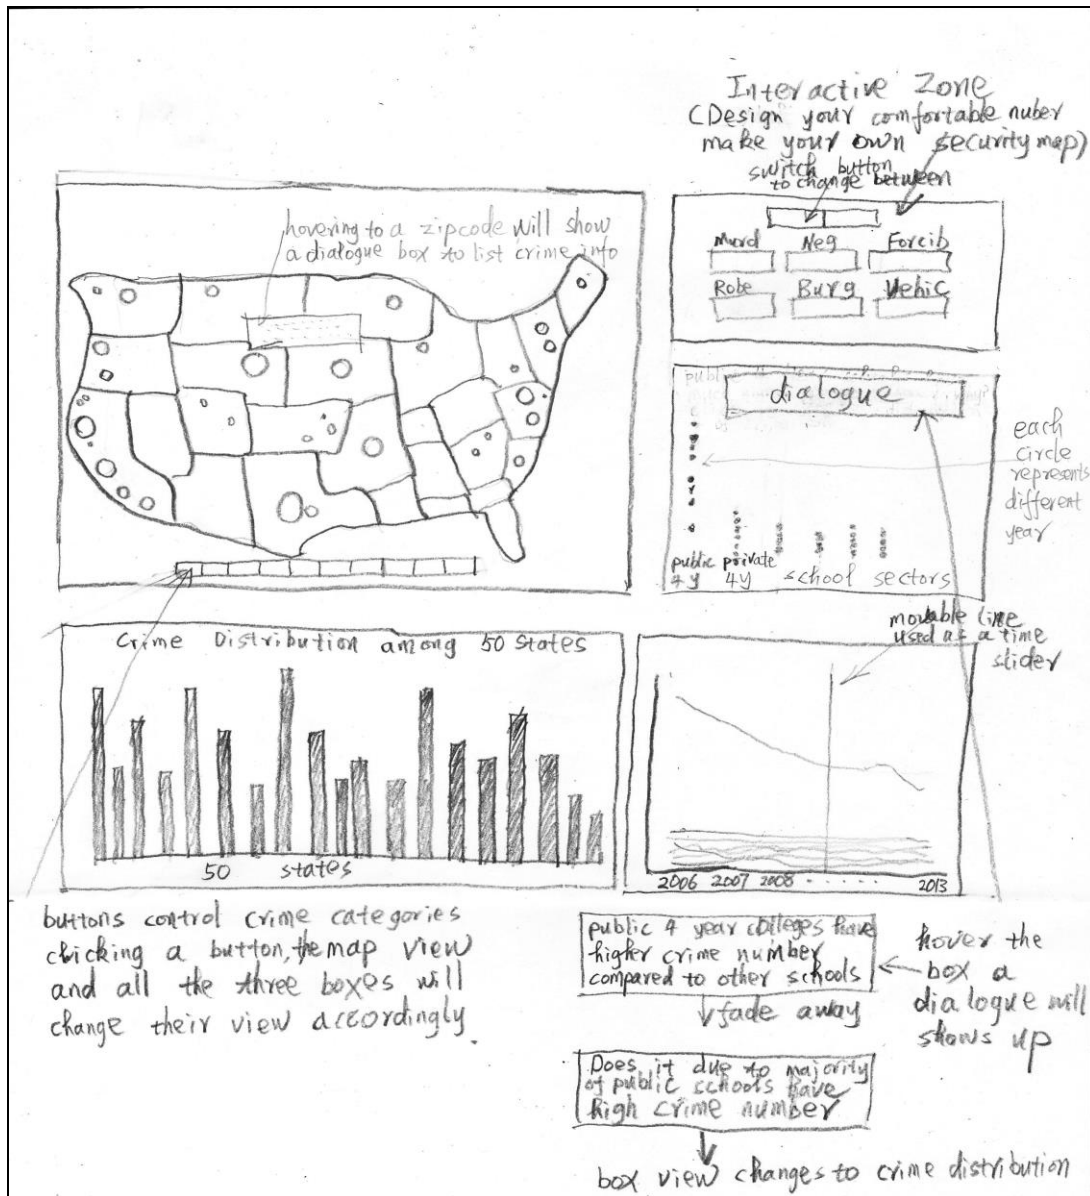 Interactive Zone
(Design your comfortable nuber
make your own security map)
switch button
to change between
Murd Neg Forcib
Robe Burg Vehic
hovering to a zipcode will show
a dialogue box to list crime info
dialogue
each
circle
represents
different
year
public private
4 y 4y school sectors
Crime Distribution among 50 states
50 states
movable line
used as a time
slider
2006 2007 2008 . . . . . . 2013
buttons control crime categories
clicking a button, the map view
and all the three boxes will
change their view accordingly.
public 4 year colleges have
higher crime number
compared to other schools
hover the
box a
dialogue will
shows up
fade away
Does it due to majority
of public schools have
high crime number
box view changes to crime distribution